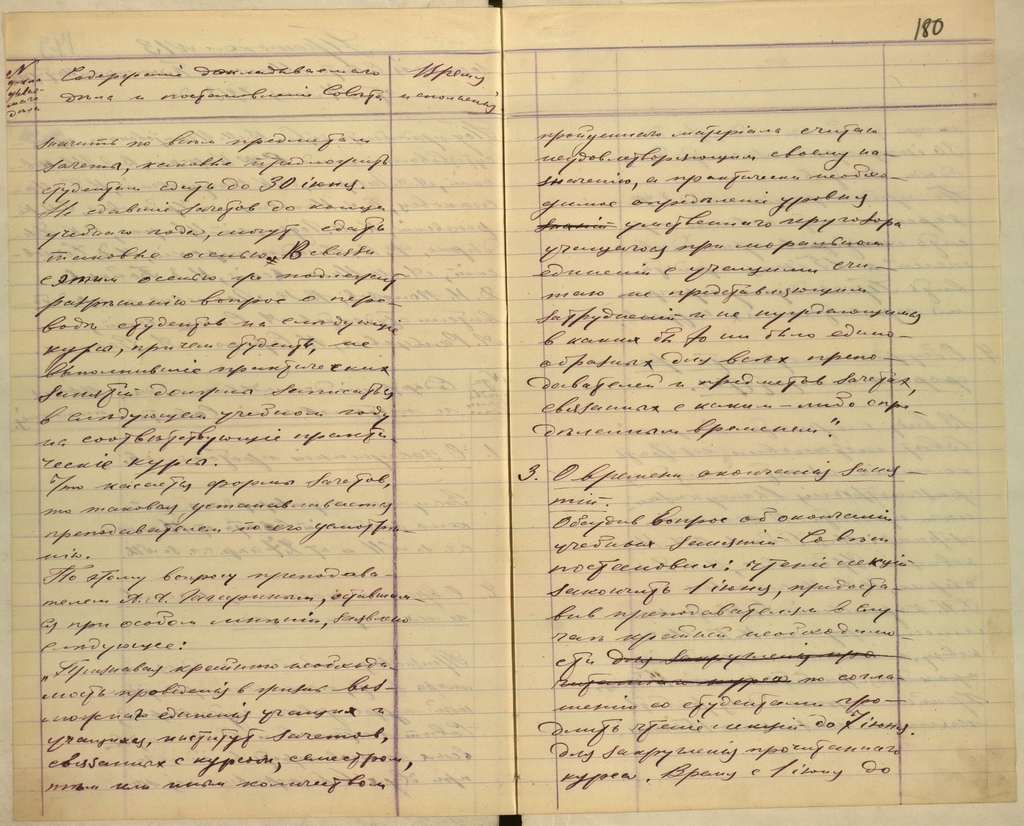 180
№
Содержаніе докладываемаго
дѣла и постановленіе Совѣта
Время
исполненія
значить по всѣм предметам
зачеты, каковые предложить
студентам сдать до 30 іюня.
Не сдавшіе зачетов до конца
учебнаго года, могут сдать
таковые осенью. В связи
с этим осенью же подлежит
разрѣшенію вопрос о пере-
водѣ студентов на слѣдующіе
курсы, причем студенты, не
выполнившіе практических
занятій должны записаться
в слѣдующем учебном году
на соотвѣтствующіе практи-
ческіе курсы.
Что касается формы зачетов,
то таковая устанавливается
преподавателем по его усмотрѣ-
нію.
По этому вопросу преподава-
телем А. А. оставшим-
ся при особом мнѣніи, заявлено
слѣдующее:
„Признавая крайнюю необходи-
мость проведенія в жизнь воз-
можнаго единенія учащих и
учащихся, институт зачетов,
связанных с курсом, семестром,
тѣм или иным количеством
пройденнаго матеріала считаю
неудовлетворяющим своему на-
значенію, а практически необхо-
димое опредѣленіе уровня
знаній умственнаго кругозора
учащагося при моральном
единеніи с учащими счи-
таю не представляющим
затрудненій и не нуждающимся
в каких бы то ни было едино-
образных для всѣх препо-
давателей и предметов зачетах,
связанных с каким-либо опре-
дѣленным временем".
3. О времени окончанія заня-
тій.
Обсудив вопрос об окончаніи
учебных занятій Совѣт
постановил: чтеніе лекцій
закончить 1 іюня, предоста-
вив преподавателям в слу-
чаѣ крайней необходимо-
сти для закругленія про-
читаннаго курса по согла-
шенію со студентами про-
длить чтеніе лекцій до 7 іюня
для закругленія прочитаннаго
курса. Время с 1 іюня до